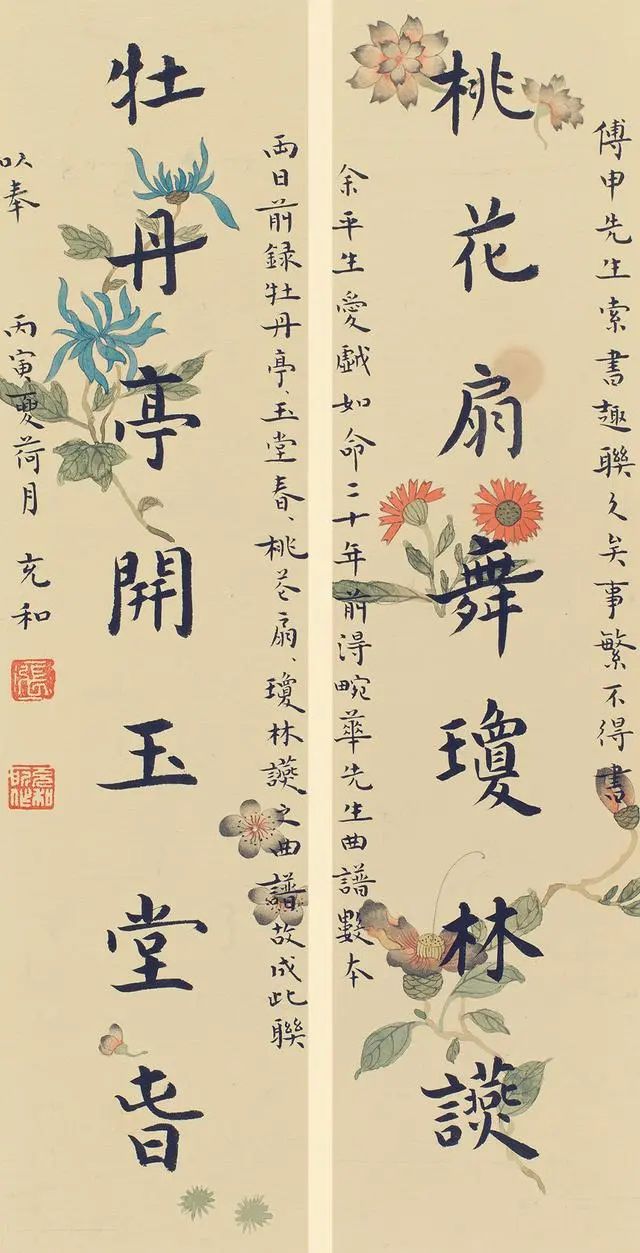 傅申先生索書趣聯久矣事繁不得書
桃花扇舞瓊林讌
余平生愛戯如命二十年前得畹華先生曲譜數本
兩日前録牡丹亭、玉堂春、桃芲扇、瓊林讌之曲譜故成此聯
牡丹亭開玉堂旾
以奉
丙寅夏荷月 充和
張